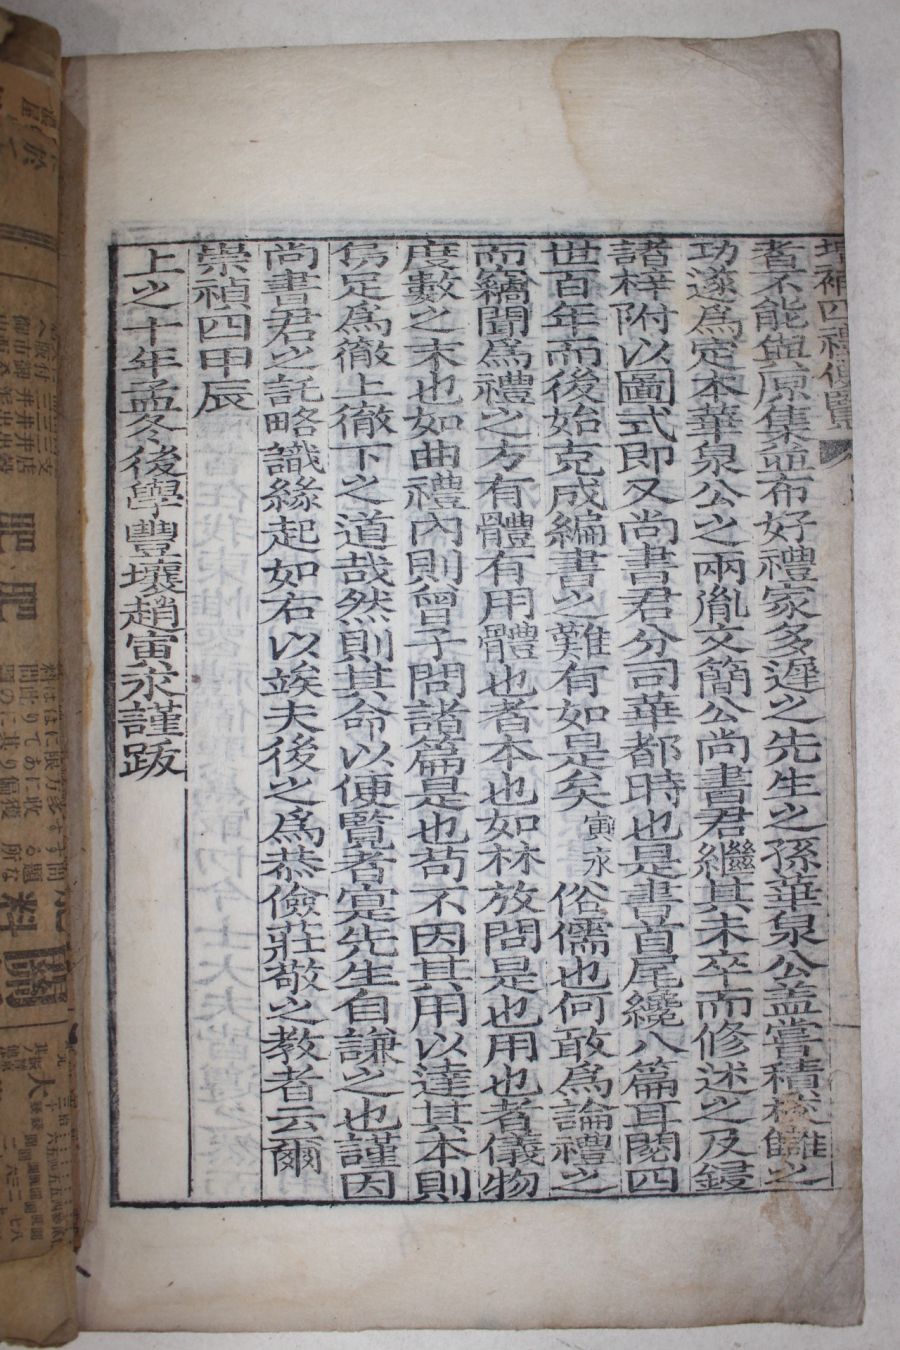 增補四禮便覽
者不能與原集並布好禮家多遲之先生之孫華泉公盖嘗積校讎之
功遂爲定本華泉公之兩胤文簡公尚書君繼其未卒而修述之及鋟
諸梓附以圖式即又尚書君分司華都時也是書首尾纔八篇耳閱四
世百年而後始克成編書之難有如是矣寅永俗儒也何敢爲論禮之
而竊聞爲禮之方有體有用體也者本也如林放問是也用也者儀物
度數之末也如曲禮內則曾子問諸篇是也苟不因其用以達其本則
烏足爲徹上徹下之道哉然則其命以便覽者寔先生自謙之也謹因
尚書君之託略識緣起如右以竢夫後之爲恭儉莊敬之教者云爾
崇禎四甲辰
上之十年孟冬後學豐壤趙寅永謹跋